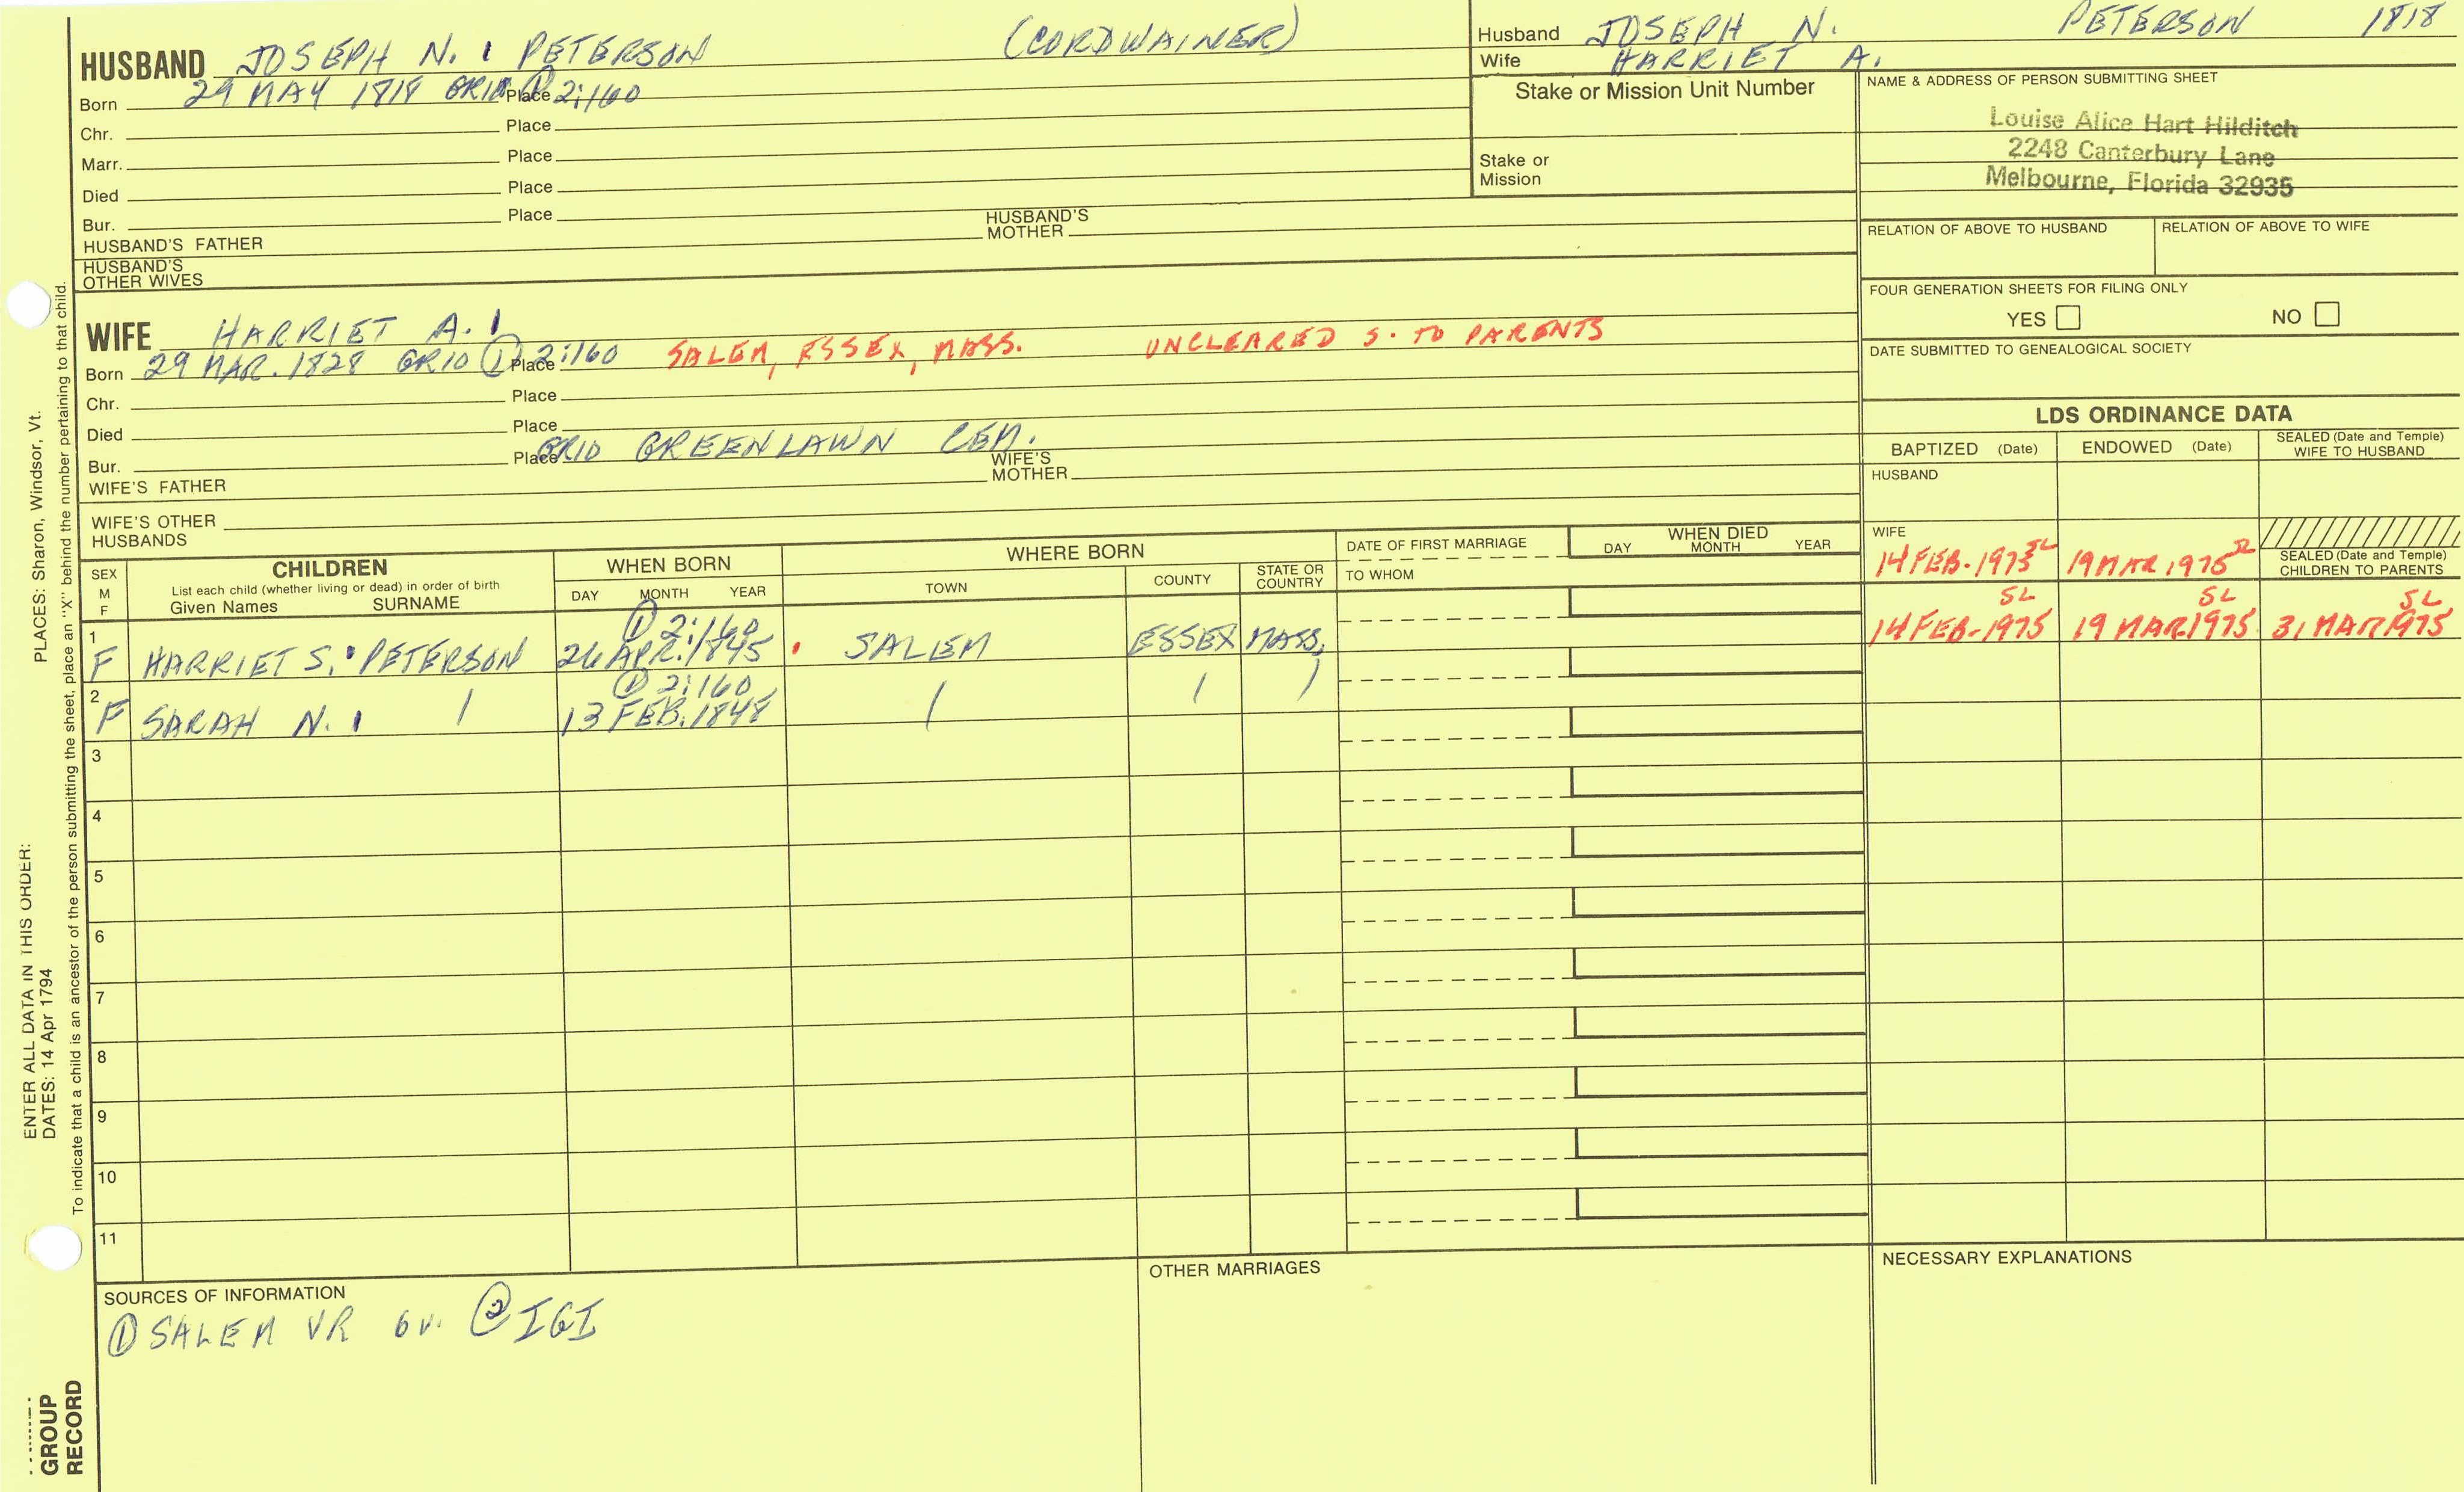 HUSBAND JOSEPH N. PETERSON (CORDWAINER)
Born 29 MAY 1818 GRID ① Place 2:160
Chr. Place
Marr. Place
Died Place
Bur. Place
HUSBAND'S FATHER HUSBAND'S MOTHER
HUSBAND'S OTHER WIVES
Husband JOSEPH N. PETERSON 1818
Wife HARRIET A.
Stake or Mission Unit Number
Stake or Mission
NAME & ADDRESS OF PERSON SUBMITTING SHEET
Louise Alice Hart Hilditch
2248 Canterbury Lane
Melbourne, Florida 32935
RELATION OF ABOVE TO HUSBAND RELATION OF ABOVE TO WIFE
FOUR GENERATION SHEETS FOR FILING ONLY
YES NO
DATE SUBMITTED TO GENEALOGICAL SOCIETY
WIFE HARRIET A.
Born 29 MAR. 1828 GRID ① Place 2:160 SALEM, ESSEX, MASS. UNCLEARED S. TO PARENTS
Chr. Place
Died Place
Bur. Place GRID GREENLAWN CEM.
WIFE'S FATHER WIFE'S MOTHER
WIFE'S OTHER HUSBANDS
LDS ORDINANCE DATA
BAPTIZED (Date) ENDOWED (Date) SEALED (Date and Temple) WIFE TO HUSBAND
HUSBAND
WIFE
14 FEB. 1975 SL 19 MAR 1975 SL
SEALED (Date and Temple) CHILDREN TO PARENTS
SEX M F
CHILDREN
List each child (whether living or dead) in order of birth
Given Names SURNAME
WHEN BORN
DAY MONTH YEAR
WHERE BORN
TOWN COUNTY STATE OR COUNTRY
DATE OF FIRST MARRIAGE
TO WHOM
WHEN DIED
DAY MONTH YEAR
① 2:160 SL SL SL
1 F HARRIET S. PETERSON 26 APR. 1845 SALEM ESSEX MASS. 14 FEB-1975 19 MAR 1975 31 MAR 1975
① 2:160
2 F SARAH N. 13 FEB. 1848
3
4
5
6
7
8
9
10
11
SOURCES OF INFORMATION
① SALEM VR 6 v. ② IGI
OTHER MARRIAGES
NECESSARY EXPLANATIONS
ENTER ALL DATA IN THIS ORDER:
DATES: 14 Apr 1794
PLACES: Sharon, Windsor, Vt.
To indicate that a child is an ancestor of the person submitting the sheet, place an "X" behind the number pertaining to that child.
GROUP
RECORD